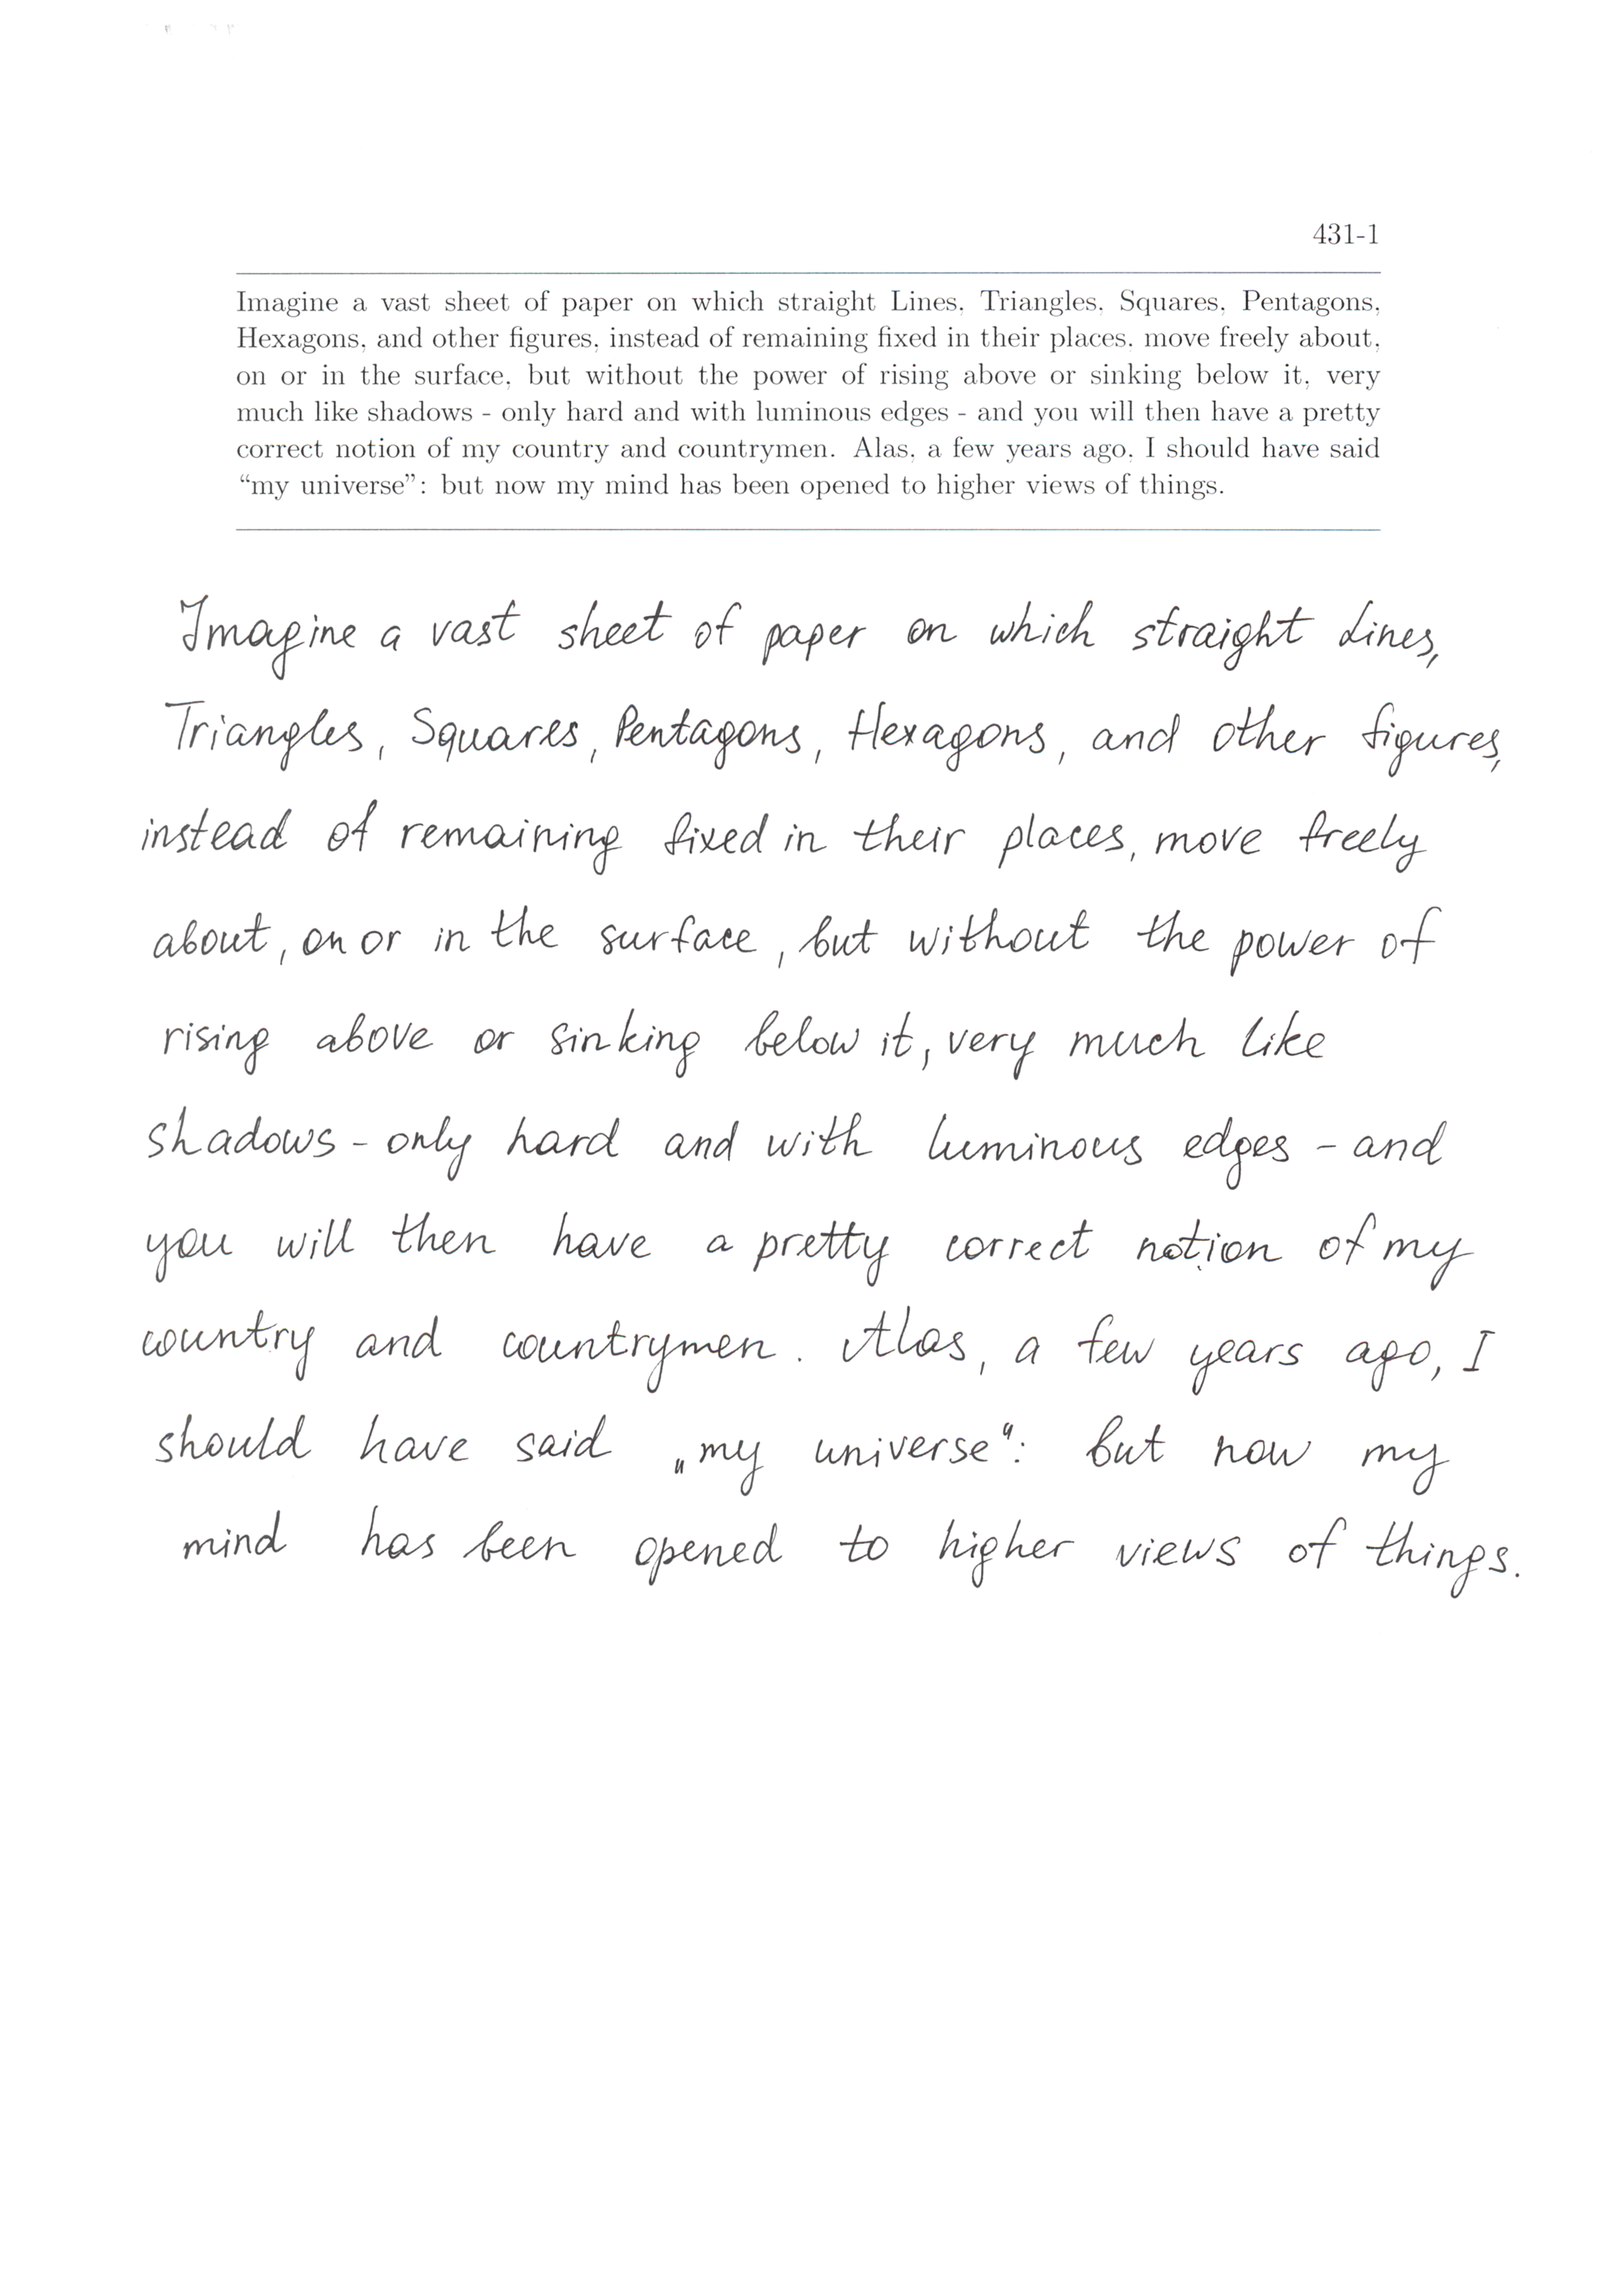 431-1
Imagine a vast sheet of paper on which straight Lines, Triangles, Squares, Pentagons,
Hexagons, and other figures, instead of remaining fixed in their places, move freely about,
on or in the surface, but without the power of rising above or sinking below it, very
much like shadows - only hard and with luminous edges - and you will then have a pretty
correct notion of my country and countrymen. Alas, a few years ago, I should have said
“my universe”: but now my mind has been opened to higher views of things.
Imagine a vast sheet of paper on which straight Lines,
Triangles, Squares, Pentagons, Hexagons, and other figures,
instead of remaining fixed in their places, move freely
about, on or in the surface, but without the power of
rising above or sinking below it, very much like
shadows - only hard and with luminous edges - and
you will then have a pretty correct notion of my
country and countrymen. Alas, a few years ago, I
should have said „my universe“: but now my
mind has been opened to higher views of things.